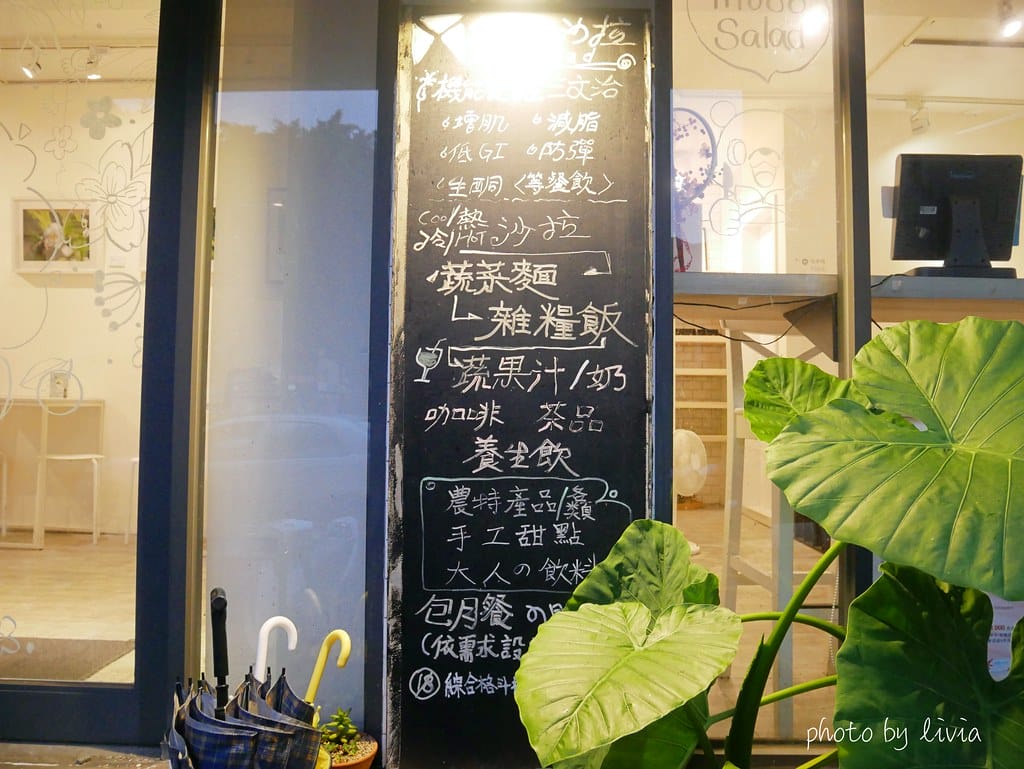 Salad
沙拉
機能 三文治
增肌 減脂
低GI 防彈
生酮〈等餐飲〉
Cool/熱
冷/HOT 沙拉
蔬菜麵
雜糧飯
蔬果汁/奶
咖啡 茶品
養生飲
農特產品/麵類
手工甜點
大人の飲料
包月餐
(依需求設
⑱ 綜合格斗
photo by livia